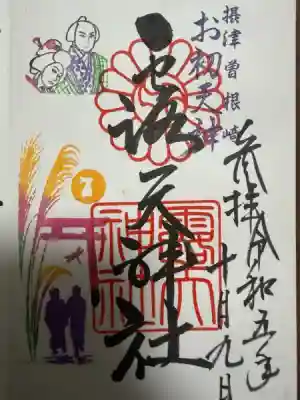 摂津曽根崎
お初天神
露天神社
奉拝 令和五年
十月九日